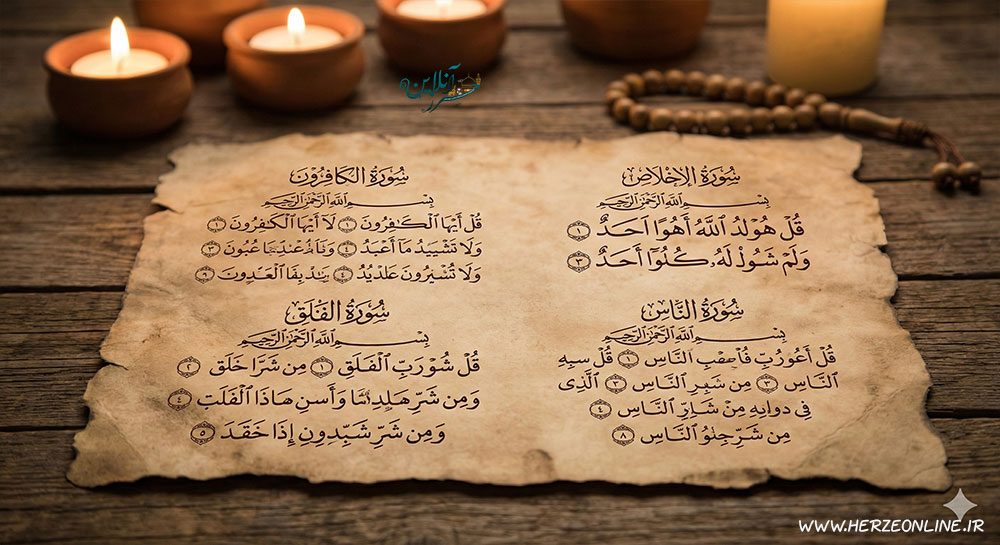 حرز آنلاین
سُورَةُ الإخلاص
بِسْمِ اللَّهِ الرَّحْمَٰنِ الرَّحِيمِ
قُلْ هُوْلدُ ٱللَّهُ أَهُوًا اَحَدٌ ١
وَلَمْ شَوُذْ لَهُۥ كُلُوًٓا أَحَدٌ ٣
سُورَةُ الكَافِرُون
بِسْمِ اللَّهِ الرَّحْمَٰنِ الرَّحِيمِ
قُل أَيُّهَا ٱلْكَٰفِرُونَ ١ لَآ أَيُّهَا ٱلْكَٰفِرُونَ ١
وَلَا تَشْيِيدُ مَآ أَعْبَدُ ٤ عُبُونَ ٣
وَلَا تُسْيَرُونَ عَلْدْيُدُ ٤ بِفَا ٱلْعَدِونَ ٩
سُورَةُ النَّاس
بِسْمِ اللَّهِ الرَّحْمَٰنِ الرَّحِيمِ
قُل أَعُوُرُبِّ ٱلنَّاسِ ٩ قُل سبِهِ
ٱلنَّاسِ ٣ مِن شَبِرِ ٱلنَّاسِ ٣ ٱلَّذِى
فِى دوابِهِ مِنْ شَارِّ ٱلنَّاسِ ٤
مِن شَرِّ ٱلنَّاسِ ٨
سُورَةُ الفَلَق
بِسْمِ اللَّهِ الرَّحْمَٰنِ الرَّحِيمِ
قُلْ شُوْرَبِّ ٱلْفَلَقِ ١ مِن شَرَّا خَلَقَ ٢
وَمِن شَرِّ وَأَسنِ هَاذَا ٱلْفَلَبِ ٤
وَمِن شَرِّ شَبِّدِونِ إِذَا خَقَدَ ٥
WWW.HERZEONLINE.IR